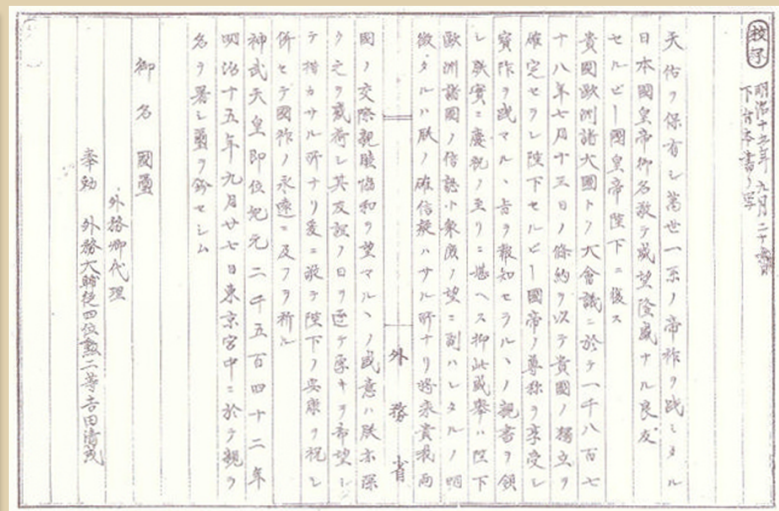 校了
明治十五年九月二十
下ケ本書ノ写
天佑ヲ保有シ萬世一系ノ帝祚ヲ践ミタル
日本國皇帝御名敬テ威望隆盛ナル良友
セルビー國皇帝陛下ニ復ス
貴國歐洲諸大國トノ大會議ニ於テ一千八百七
十八年七月十三日ノ條約ヲ以テ貴國ノ獨立ヲ
確定セラレ陛下セルビー國帝ノ尊称ヲ享受シ
寳祚ヲ践マルヽ旨ヲ報知セラルヽノ親書ヲ領
シ朕實ニ慶祝ノ至リニ堪ヘス抑此盛挙ハ陛下
歐洲諸國ノ信認ト衆庶ノ望ニ副ハレタルノ明
徴タルハ朕ノ確信疑ハサル所ナリ将来貴我両
外務省
國ノ交際親睦協和ヲ望マルヽノ盛意ハ朕亦深
ク之ヲ感荷シ其友誼ノ日ヲ逐テ厚キヲ希望シ
テ措カサル所ナリ爰ニ敬テ陛下ノ安康ヲ祝シ
併セテ國祚ノ永遠ニ及フヲ祈ル
神武天皇即位紀元二千五百四十二年
明治十五年九月廿七日東京宮中ニ於テ親ラ
名ヲ署シ璽ヲ鈐セシム
御名國璽
外務卿代理
奉勅 外務大輔従四位勲二等吉田清成